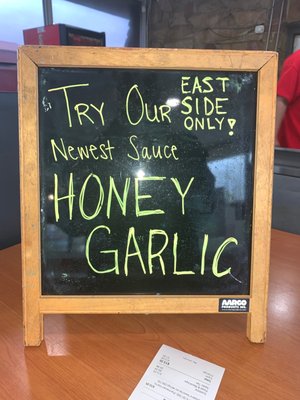 Try Our EAST SIDE ONLY!
Newest Sauce
HONEY
GARLIC
AARCO
PRODUCTS INC.